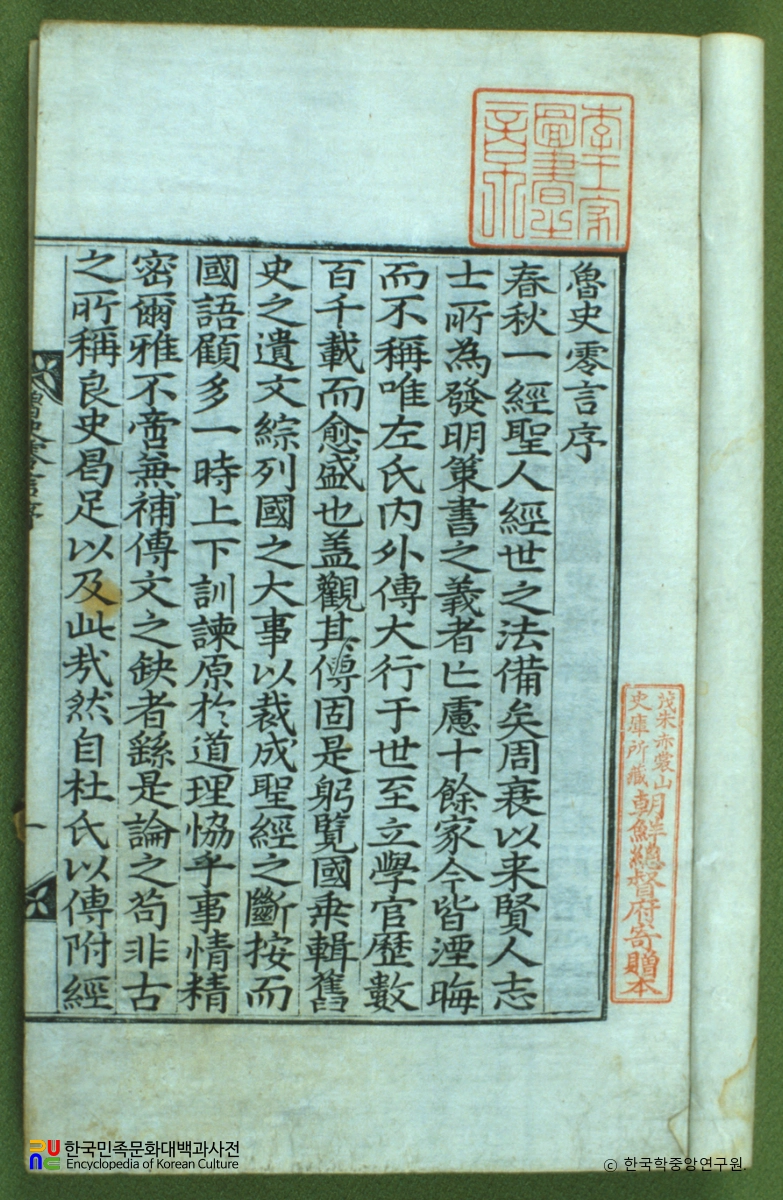 李王家
圖書
魯史零言序
春秋一經聖人經世之法備矣周衰以来賢人志
士所為發明策書之義者亡慮十餘家今皆湮晦
而不稱唯左氏内外傳大行于世至立學官歷數
百千載而愈盛也盖觀其傳固是躬覽國乗輯舊
史之遺文綜列國之大事以裁成聖經之斷按而
國語顧多一時上下訓諫原於道理恊乎事情精
密爾雅不啻無補傳文之缺者繇是論之苟非古
之所稱良史曷足以及此㢤然自杜氏以傳附經
魯史零言序
一
茂朱赤裳山
史庫所藏
朝鮮總督府寄贈本
한국민족문화대백과사전
Encyclopedia of Korean Culture
ⓒ 한국학중앙연구원.